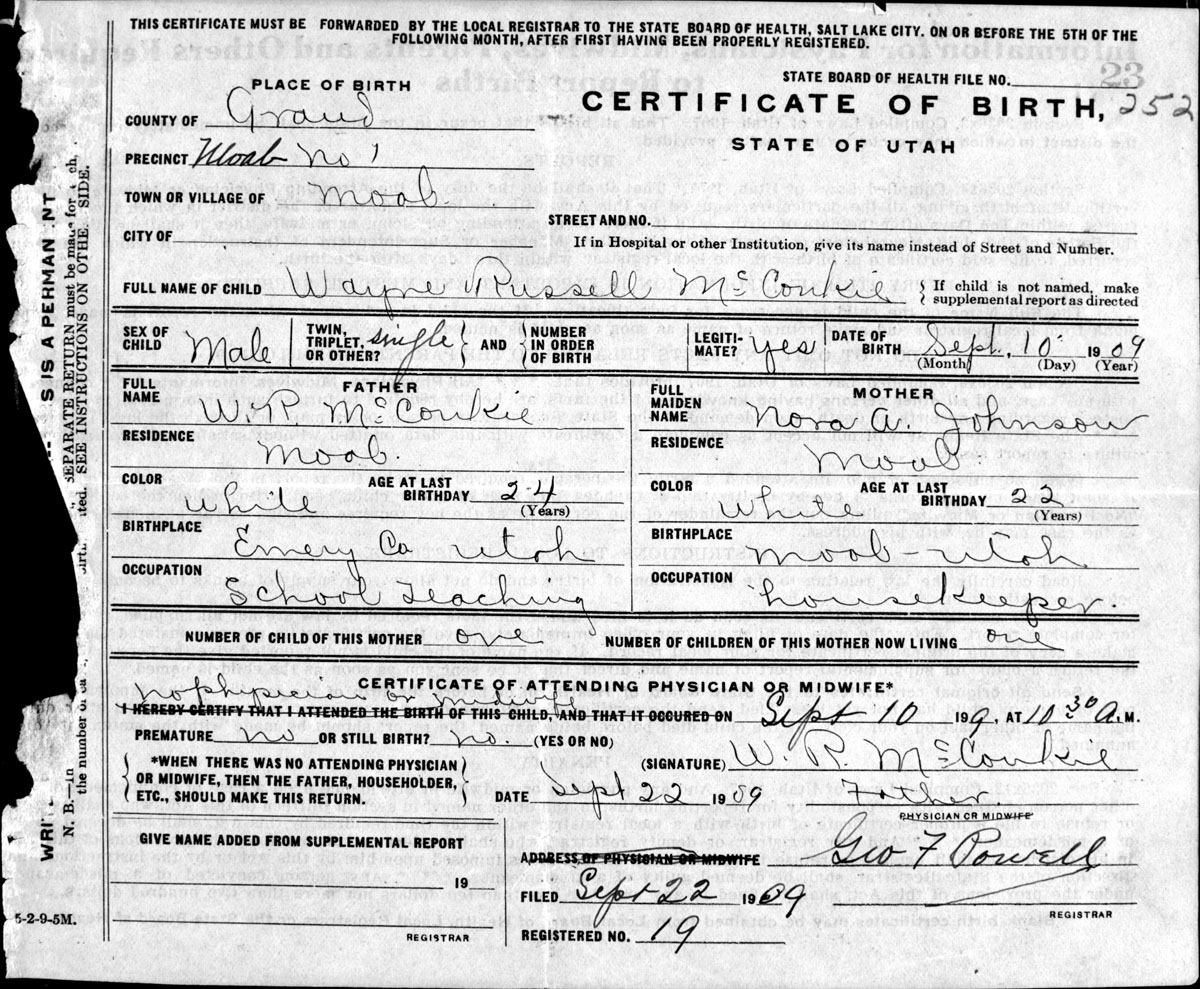 THIS CERTIFICATE MUST BE FORWARDED BY THE LOCAL REGISTRAR TO THE STATE BOARD OF HEALTH, SALT LAKE CITY. ON OR BEFORE THE 5TH OF THE
FOLLOWING MONTH, AFTER FIRST HAVING BEEN PROPERLY REGISTERED.
23
PLACE OF BIRTH
STATE BOARD OF HEALTH FILE NO.
COUNTY OF Grand
CERTIFICATE OF BIRTH, 252
STATE OF UTAH
PRECINCT Moab No 1
TOWN OR VILLAGE OF Moab.
STREET AND NO.
CITY OF
If in Hospital or other Institution, give its name instead of Street and Number.
FULL NAME OF CHILD Wayne Russell McConkie { If child is not named, make
supplemental report as directed
SEX OF CHILD Male TWIN, TRIPLET, OR OTHER? single { AND } NUMBER IN ORDER OF BIRTH LEGITI-MATE? yes DATE OF BIRTH Sept. 10 1909
(Month) (Day) (Year)
FATHER
FULL NAME W. R. McConkie
RESIDENCE Moab.
COLOR White AGE AT LAST BIRTHDAY 24
(Years)
BIRTHPLACE Emery Co Utah
OCCUPATION School teaching
MOTHER
FULL MAIDEN NAME Nora A. Johnson
RESIDENCE Moab
COLOR White AGE AT LAST BIRTHDAY 22
(Years)
BIRTHPLACE Moab - Utah
OCCUPATION housekeeper.
NUMBER OF CHILD OF THIS MOTHER one NUMBER OF CHILDREN OF THIS MOTHER NOW LIVING one
CERTIFICATE OF ATTENDING PHYSICIAN OR MIDWIFE*
no physician or midwife
I HEREBY CERTIFY THAT I ATTENDED THE BIRTH OF THIS CHILD, AND THAT IT OCCURED ON Sept 10 1909, AT 10 30 A. M.
PREMATURE no OR STILL BIRTH? no. (YES OR NO)
(SIGNATURE) W. R. McConkie
{ *WHEN THERE WAS NO ATTENDING PHYSICIAN
OR MIDWIFE, THEN THE FATHER, HOUSEHOLDER,
ETC., SHOULD MAKE THIS RETURN. }
DATE Sept 22 1909 Father
PHYSICIAN OR MIDWIFE
GIVE NAME ADDED FROM SUPPLEMENTAL REPORT
19
REGISTRAR
ADDRESS OF PHYSICIAN OR MIDWIFE
Geo. F Powell
FILED Sept 22 1909
REGISTRAR
REGISTERED NO. 19
5-2-9-5M.
SIS A PERMAN NT
N. B.—in
SEPARATE RETURN must be made for
the number of
SEE INSTRUCTIONS ON OTHE SIDE.